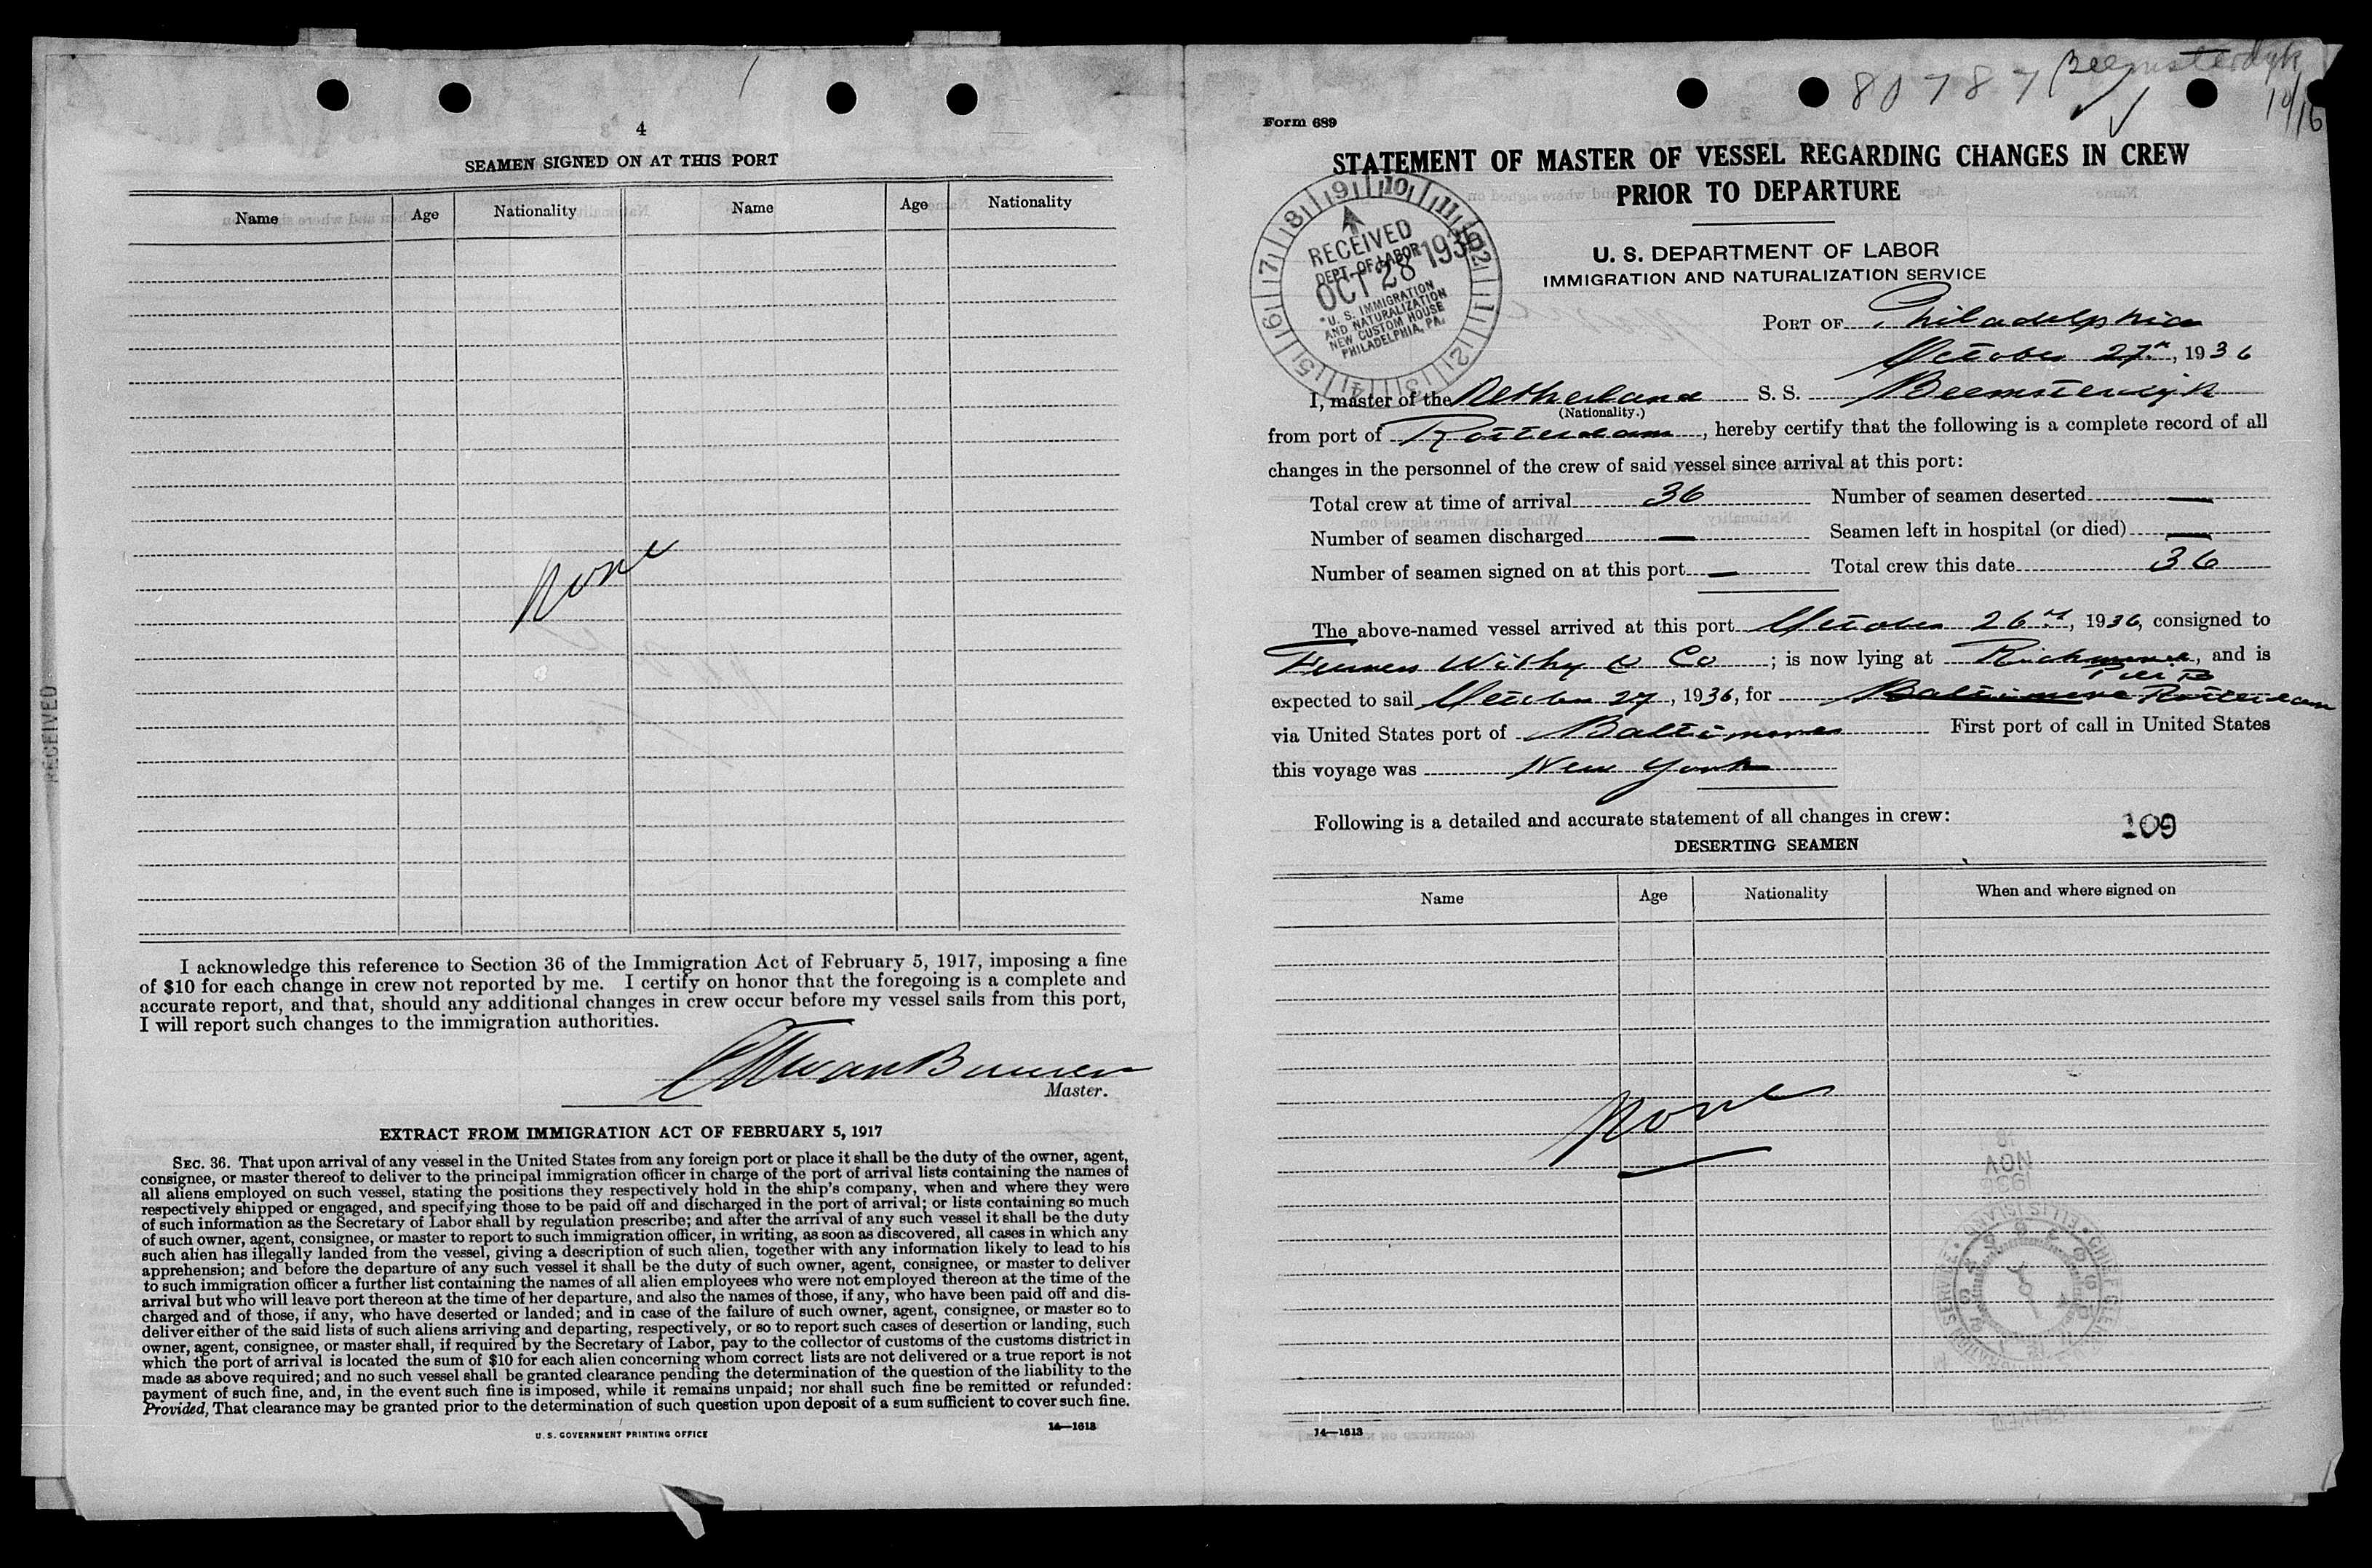 4
SEAMEN SIGNED ON AT THIS PORT
Name Age Nationality Name Age Nationality
None
I acknowledge this reference to Section 36 of the Immigration Act of February 5, 1917, imposing a fine
of $10 for each change in crew not reported by me. I certify on honor that the foregoing is a complete and
accurate report, and that, should any additional changes in crew occur before my vessel sails from this port,
I will report such changes to the immigration authorities.
Master.
EXTRACT FROM IMMIGRATION ACT OF FEBRUARY 5, 1917
SEC. 36. That upon arrival of any vessel in the United States from any foreign port or place it shall be the duty of the owner, agent,
consignee, or master thereof to deliver to the principal immigration officer in charge of the port of arrival lists containing the names of
all aliens employed on such vessel, stating the positions they respectively hold in the ship's company, when and where they were
respectively shipped or engaged, and specifying those to be paid off and discharged in the port of arrival; or lists containing so much
of such information as the Secretary of Labor shall by regulation prescribe; and after the arrival of any such vessel it shall be the duty
of such owner, agent, consignee, or master to report to such immigration officer, in writing, as soon as discovered, all cases in which any
such alien has illegally landed from the vessel, giving a description of such alien, together with any information likely to lead to his
apprehension; and before the departure of any such vessel it shall be the duty of such owner, agent, consignee, or master to deliver
to such immigration officer a further list containing the names of all alien employees who were not employed thereon at the time of the
arrival but who will leave port thereon at the time of her departure, and also the names of those, if any, who have been paid off and dis-
charged and of those, if any, who have deserted or landed; and in case of the failure of such owner, agent, consignee, or master so to
deliver either of the said lists of such aliens arriving and departing, respectively, or so to report such cases of desertion or landing, such
owner, agent, consignee, or master shall, if required by the Secretary of Labor, pay to the collector of customs of the customs district in
which the port of arrival is located the sum of $10 for each alien concerning whom correct lists are not delivered or a true report is not
made as above required; and no such vessel shall be granted clearance pending the determination of the question of the liability to the
payment of such fine, and, in the event such fine is imposed, while it remains unpaid; nor shall such fine be remitted or refunded:
Provided, That clearance may be granted prior to the determination of such question upon deposit of a sum sufficient to cover such fine.
U. S. GOVERNMENT PRINTING OFFICE 14—1613
RECEIVED
80787 Beemsterdyk
10/16
Form 689
STATEMENT OF MASTER OF VESSEL REGARDING CHANGES IN CREW
PRIOR TO DEPARTURE
U. S. DEPARTMENT OF LABOR
IMMIGRATION AND NATURALIZATION SERVICE
RECEIVED
DEPT. OF LABOR
OCT 28 1936
U. S. IMMIGRATION
AND NATURALIZATION
NEW CUSTOM HOUSE
PHILADELPHIA, PA.
PORT OF Philadelphia
October 27th, 1936
I, master of the Netherland S. S. Beemsterdijk
(Nationality.)
from port of Rotterdam, hereby certify that the following is a complete record of all
changes in the personnel of the crew of said vessel since arrival at this port:
Total crew at time of arrival 36 Number of seamen deserted —
Number of seamen discharged — Seamen left in hospital (or died) —
Number of seamen signed on at this port — Total crew this date 36
The above-named vessel arrived at this port October 26th, 1936, consigned to
Furness Withy & Co; is now lying at Richmond, and is
Pier B
expected to sail October 27, 1936, for Baltimore Rotterdam
via United States port of Baltimore First port of call in United States
this voyage was New York
Following is a detailed and accurate statement of all changes in crew:
109
DESERTING SEAMEN
Name Age Nationality When and where signed on
None
14—1613